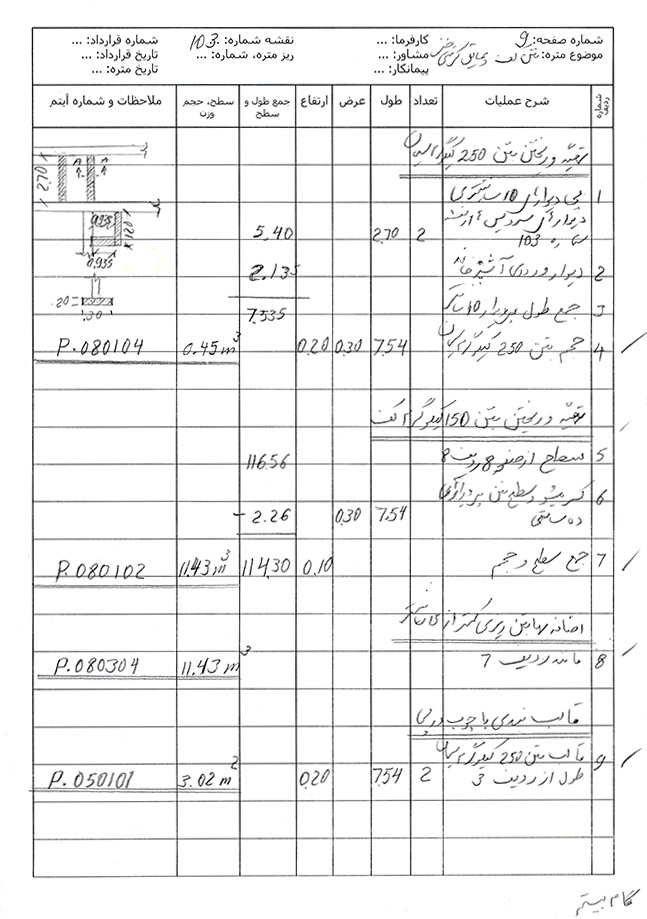 شماره صفحه: 9 کارفرما: ... نقشه شماره: 103 شماره قرارداد: ...
موضوع متره: بتن کف و مشاور: ... ریز متره، شماره: ... تاریخ قرارداد: ...
پیمانکار: ... تاریخ متره: ...
شماره ردیف شرح عملیات تعداد طول عرض ارتفاع جمع طول و سطح سطح، حجم وزن ملاحظات و شماره آیتم
تهیه و ریختن بتن 250 کیلوگرم سیمان
1 پی دیوارهای 10 سانتیمتری
دیوارهای سرویس ها از نقشه
شماره 103 2 2.70 5.40
2 دیوار ورودی آشپزخانه 2.135
3 جمع طول پی دیوار 10 سانت 7.535
4 حجم بتن 250 کیلوگرم سیمان 7.54 0.30 0.20 0.45 m³ P.080104
تهیه و ریختن بتن 150 کیلوگرم کف
5 سطح از صفحه 8 ردیف 8 116.56
6 کسر میشود سطح بتن پی دیوارهای
ده سانتی 7.54 0.30 - 2.26
7 جمع سطح و حجم 0.10 114.30 11.43 m³ P.080102
اضافه بها بتن ریزی کمتر از
8 مانند ردیف 7 11.43 m³ P.080304
قالب بندی با چوب در پی
9 قالب بتن 250 کیلوگرم سیمان
طول از ردیف 3 2 7.54 0.20 3.02 m² P.050101
2.70
0.935
1.20
0.935
.20
.30
گام بیستم